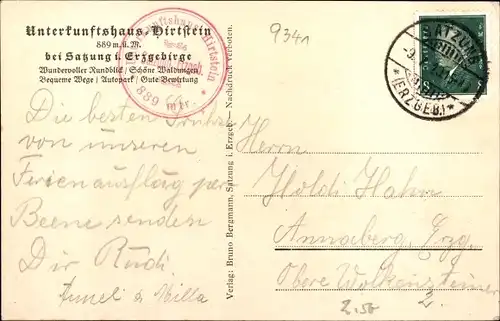 Unterkunftshaus-Hirtstein
889 m.ü.M.
bei Satzung i. Erzgebirge
Wundervoller Rundblick / Schöne Waldungen
Bequeme Wege / Autopark / Gute Bewirtung
Unterkunftshaus Hirtstein
889 m
9341
SATZUNG
*(ERZGEB.)*
Die besten Grüße
von unseren
Ferienausflug per
Beene senden
Dir Rudi
& Milla
Verlag: Bruno Bergmann, Satzung i. Erzgeb. — Nachdruck verboten.
Herrn
Holdi Hahn
Annaberg Erzg.
Obere Wolkensteiner
2.
2.50